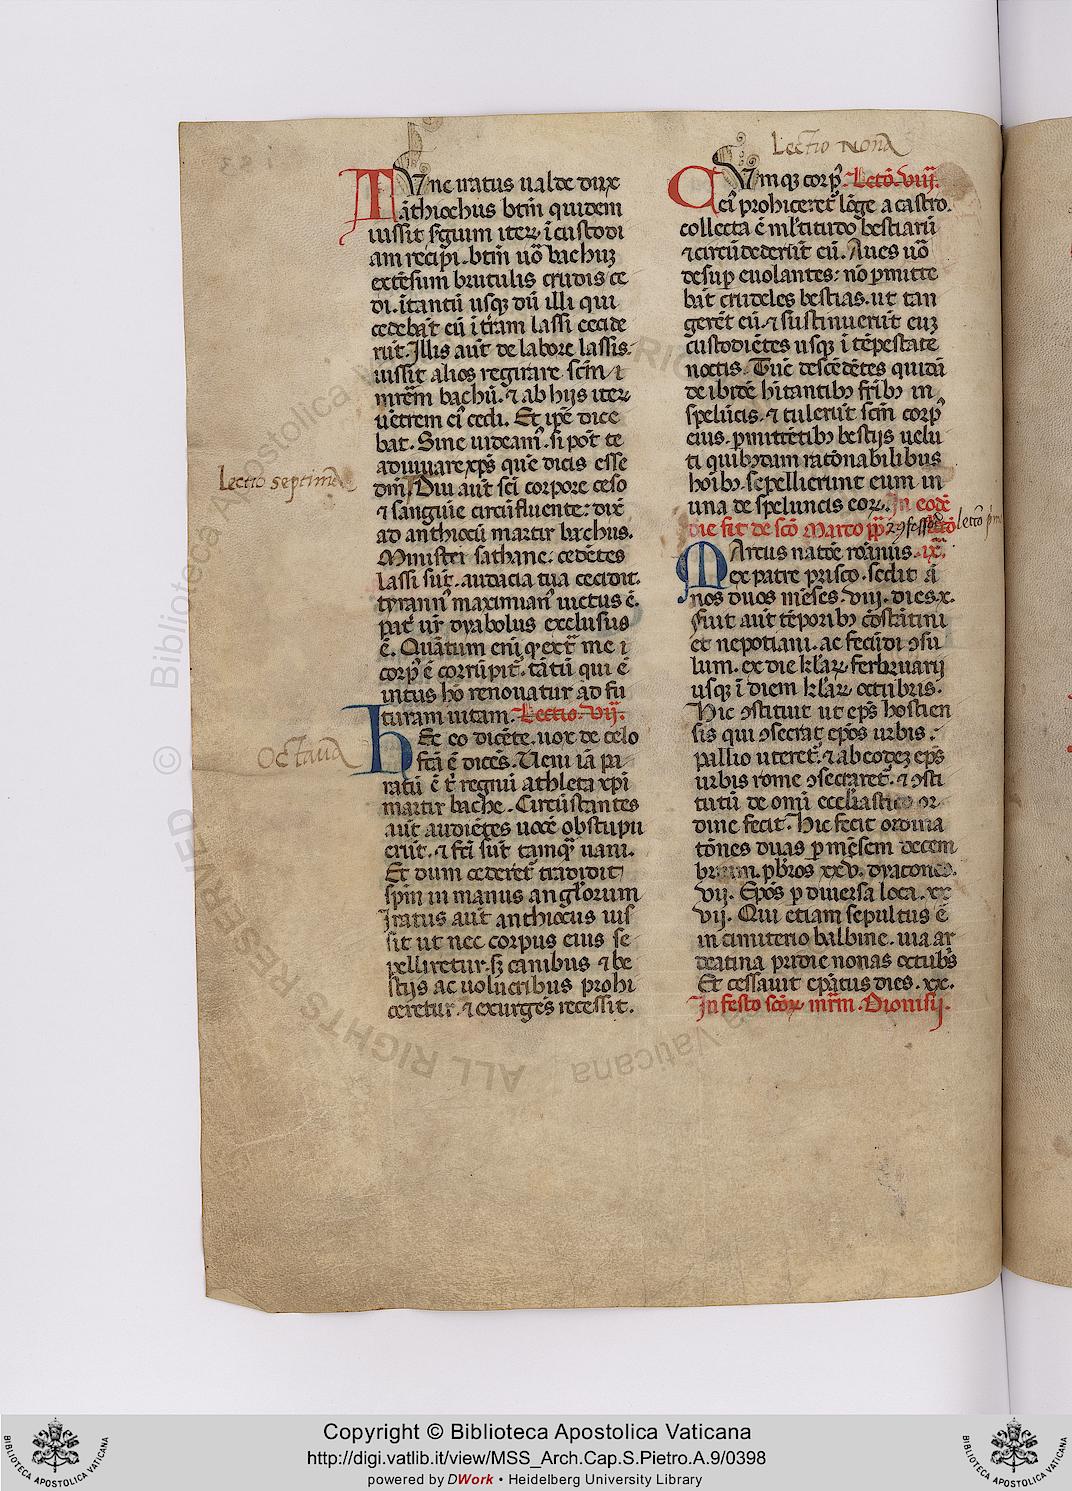 Lectio Nona
TVnc iratus ualde dux
ãthiochus btm̃ quidem
iussit sʼgium iterꝝ ĩ custodi
am recipi. btm̃ uõ bachuꝫ
extẽsum brutulis crudis ce
di. ĩtantũ usqꝫ dũ illi qui
cedebãt eũ ĩ trãm lassi cecide
rũt. Illis aũt de labore lassis.
iussit alios regirare scm̃ ⁊
mrẽm bachũ. ⁊ ab hijs iterꝝ
uẽtrem eiꝰ cedi. Et ipẽ dice
bat. Sine uideamꝰ. si põt te
adiuuare xp̃s quẽ dicis esse
dm̃. Diu aũt sci corpore ceso
Lectio septima
⁊ sanguie circũfluente: dix̃
ad anthiocũ martir bachus.
Minister sathane. cedẽtes
lassi sũt. audacia tua cecidit.
tyrannꝰ maximianꝰ uictus ẽ.
pat̃ ur̃ dyabolus exclusus
ẽ. Quãtum eni qʼ ext̃ me ĩ
corpꝰ ẽ corrũpit̃. tãtũ qui ẽ
intus hõ renouatur ad fu
turam uitam. Lectio. vij.
Octaua
HEc eo dicẽte. uox de celo
fcã ẽ dicẽs. Ueni iã pa
ratũ ẽ t̃ regnũ athleta xp̃i
martir bache. Circũstantes
aũt audiẽtes uocẽ obstupu
erũt. ⁊ fcĩ sũt tamqꝫ uani.
Et dum cederet̃ tradidit
spm̃ in manus anglorum
Iratus aũt anthiocus ius
sit ut nec corpus eius se
pelliretur. sꝫ canibus ⁊ be
stijs ac uolucribus prohi
ceretur. ⁊ exurgẽs recessit.
CUmqꝫ corpꝰ Lectõ. viij.
eiꝰ prohiceret̃ lõge a castro.
collecta ẽ ml̃titudo bestiarũ
⁊ circũdederũt eũ. Aues uõ
desup euolantes: nõ pmitte
bãt crudeles bestias. ut tan
gerẽt eũ. ⁊ sustinuerũt euꝫ
custodiẽtes usqꝫ ĩ tẽpestate
noctis. Tũc descẽdẽtes quidã
de ibidẽ hĩtantibꝰ fribꝰ in
spelũcis. ⁊ tulerũt scm̃ corpꝰ
eius. pmittẽtibꝰ bestijs uelu
ti quibꝰdam ratõnabilibus
hoĩbꝰ. sepellierunt eum in
una de speluncis eoꝝ. In eodẽ
die fit de scõ Marco pp̃ lectõ
MArcus natõe romanus. ix.
ex patre prisco. sedit ã
nos duos mẽses. viii. dies. x.
Fuit aũt tẽporibꝰ cõstãtini
et nepotiani. ac fecũdi ꝯsu
lum. ex die kl̃aꝝ. ferbruarij
usqꝫ ĩ diem kl̃aꝝ. octubris.
Hic ꝯstituit ut ep̃s hostien
sis qui ꝯsecrat ep̃os urbis.
pallio uteret̃. ⁊ ab eodeꝫ ep̃s
urbis rome ꝯsecraret̃. ⁊ ꝯsti
tutũ de om̃i eccl̃iastico or
dine fecit. Hic fecit ordina
tõnes duas p mẽsem decem
brium. pbr̃os xxv. dyacones.
vij. Ep̃os p diuersa loca. xx
vij. Qui etiam sepultus ẽ
in cimiterio balbine. uia ar
deatina pridie nonas octubr̃s
Et cessauit ep̃atus dies. xx.
In festo scõꝝ. mr̃m. Dionisij.
Copyright © Biblioteca Apostolica Vaticana
http://digi.vatlib.it/view/MSS_Arch.Cap.S.Pietro.A.9/0398
powered by DWork • Heidelberg University Library
BIBLIOTECA APOSTOLICA VATICANA
BIBLIOTECA APOSTOLICA VATICANA
© Biblioteca Apostolica Vaticana ALL RIGHTS RESERVED